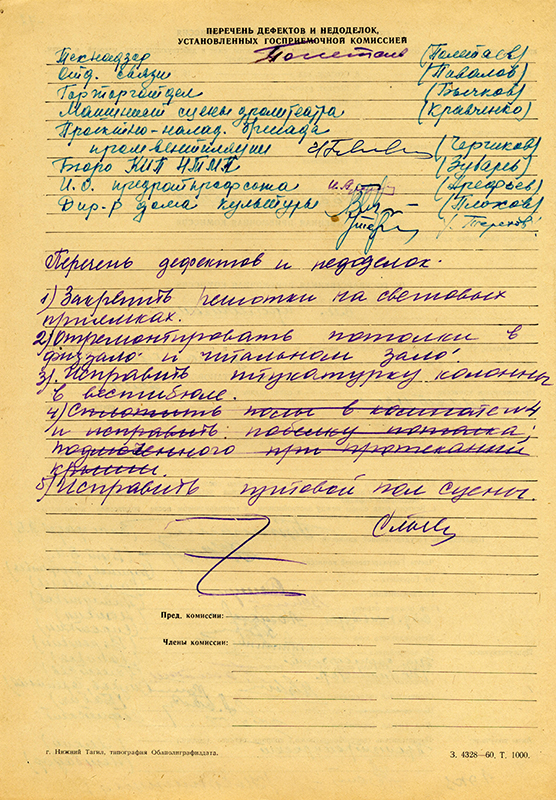 ПЕРЕЧЕНЬ ДЕФЕКТОВ И НЕДОДЕЛОК,
УСТАНОВЛЕННЫХ ГОСПРИЕМОЧНОЙ КОМИССИЕЙ
Технадзор (Полетаев)
Отд. связи (Павалов)
Горторготдел (Бычков)
Машинист сцены драмтеатра (Кравченко)
Проектно-налад. бригада
пром вентиляции (Черников)
Бюро КИП НТМК (Зубарев)
И.О. предрайпрофсожа (Арефьев)
Дир-р дома культуры (Плохов)
(Терехов)
Перечень дефектов и недоделок.
1) Закрепить решотки на световых
приямках.
2) Отремонтировать потолки в
физзале и читальном зале.
3) Исправить штукатурку колонны
в вестибюле.
4) Сплотить полы в комнате №4
и исправить побелку потолка,
подмоченного при протекании
крыши.
5) Исправить щитовой пол сцены.
Пред. комиссии:
Члены комиссии:
г. Нижний Тагил, типография Облполиграфиздата. З. 4328—60, Т. 1000.